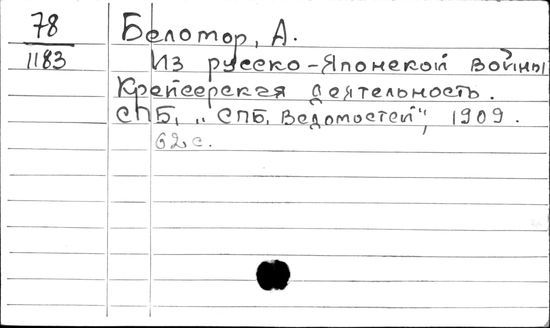 78
1183
Беломор, А.
Из русско-Японской войны
Крейсерская деятельность.
СПБ, "СПБ, Ведомостей", 1909.
62 с.